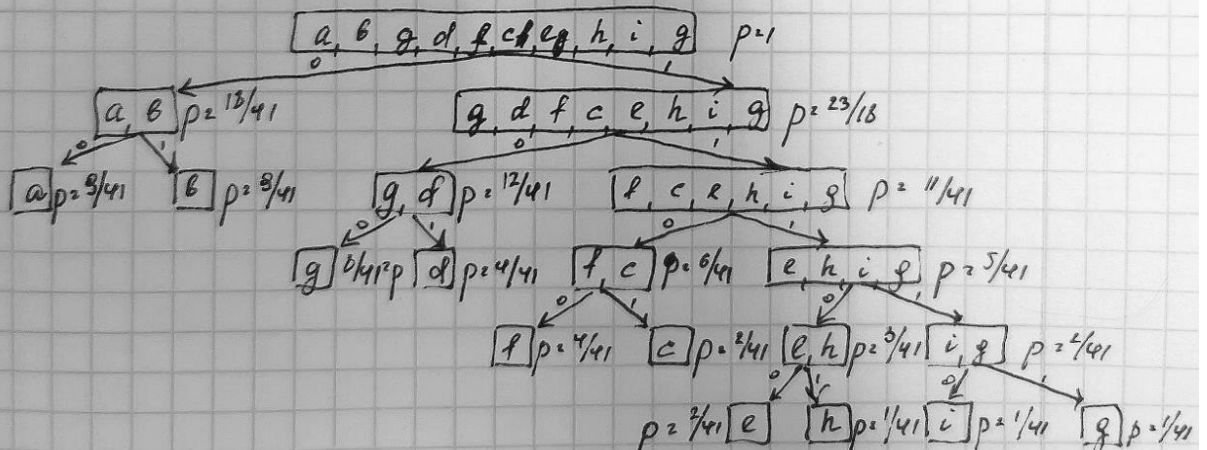 a, b, g, d, f, c, e, h, i, g p=1
0 1
a, b p=18/41 g, d, f, c, e, h, i, g p=23/18
0 1 0 1
a p=9/41 b p=9/41 g, d p=12/41 f, c, e, h, i, g p=11/41
0 1 0 1
g 8/41=p d p=4/41 f, c p=6/41 e, h, i, g p=5/41
0 1 0 1
f p=4/41 c p=2/41 e, h p=3/41 i, g p=2/41
0 1 0 1
p=2/41 e h p=1/41 i p=1/41 g p=1/41